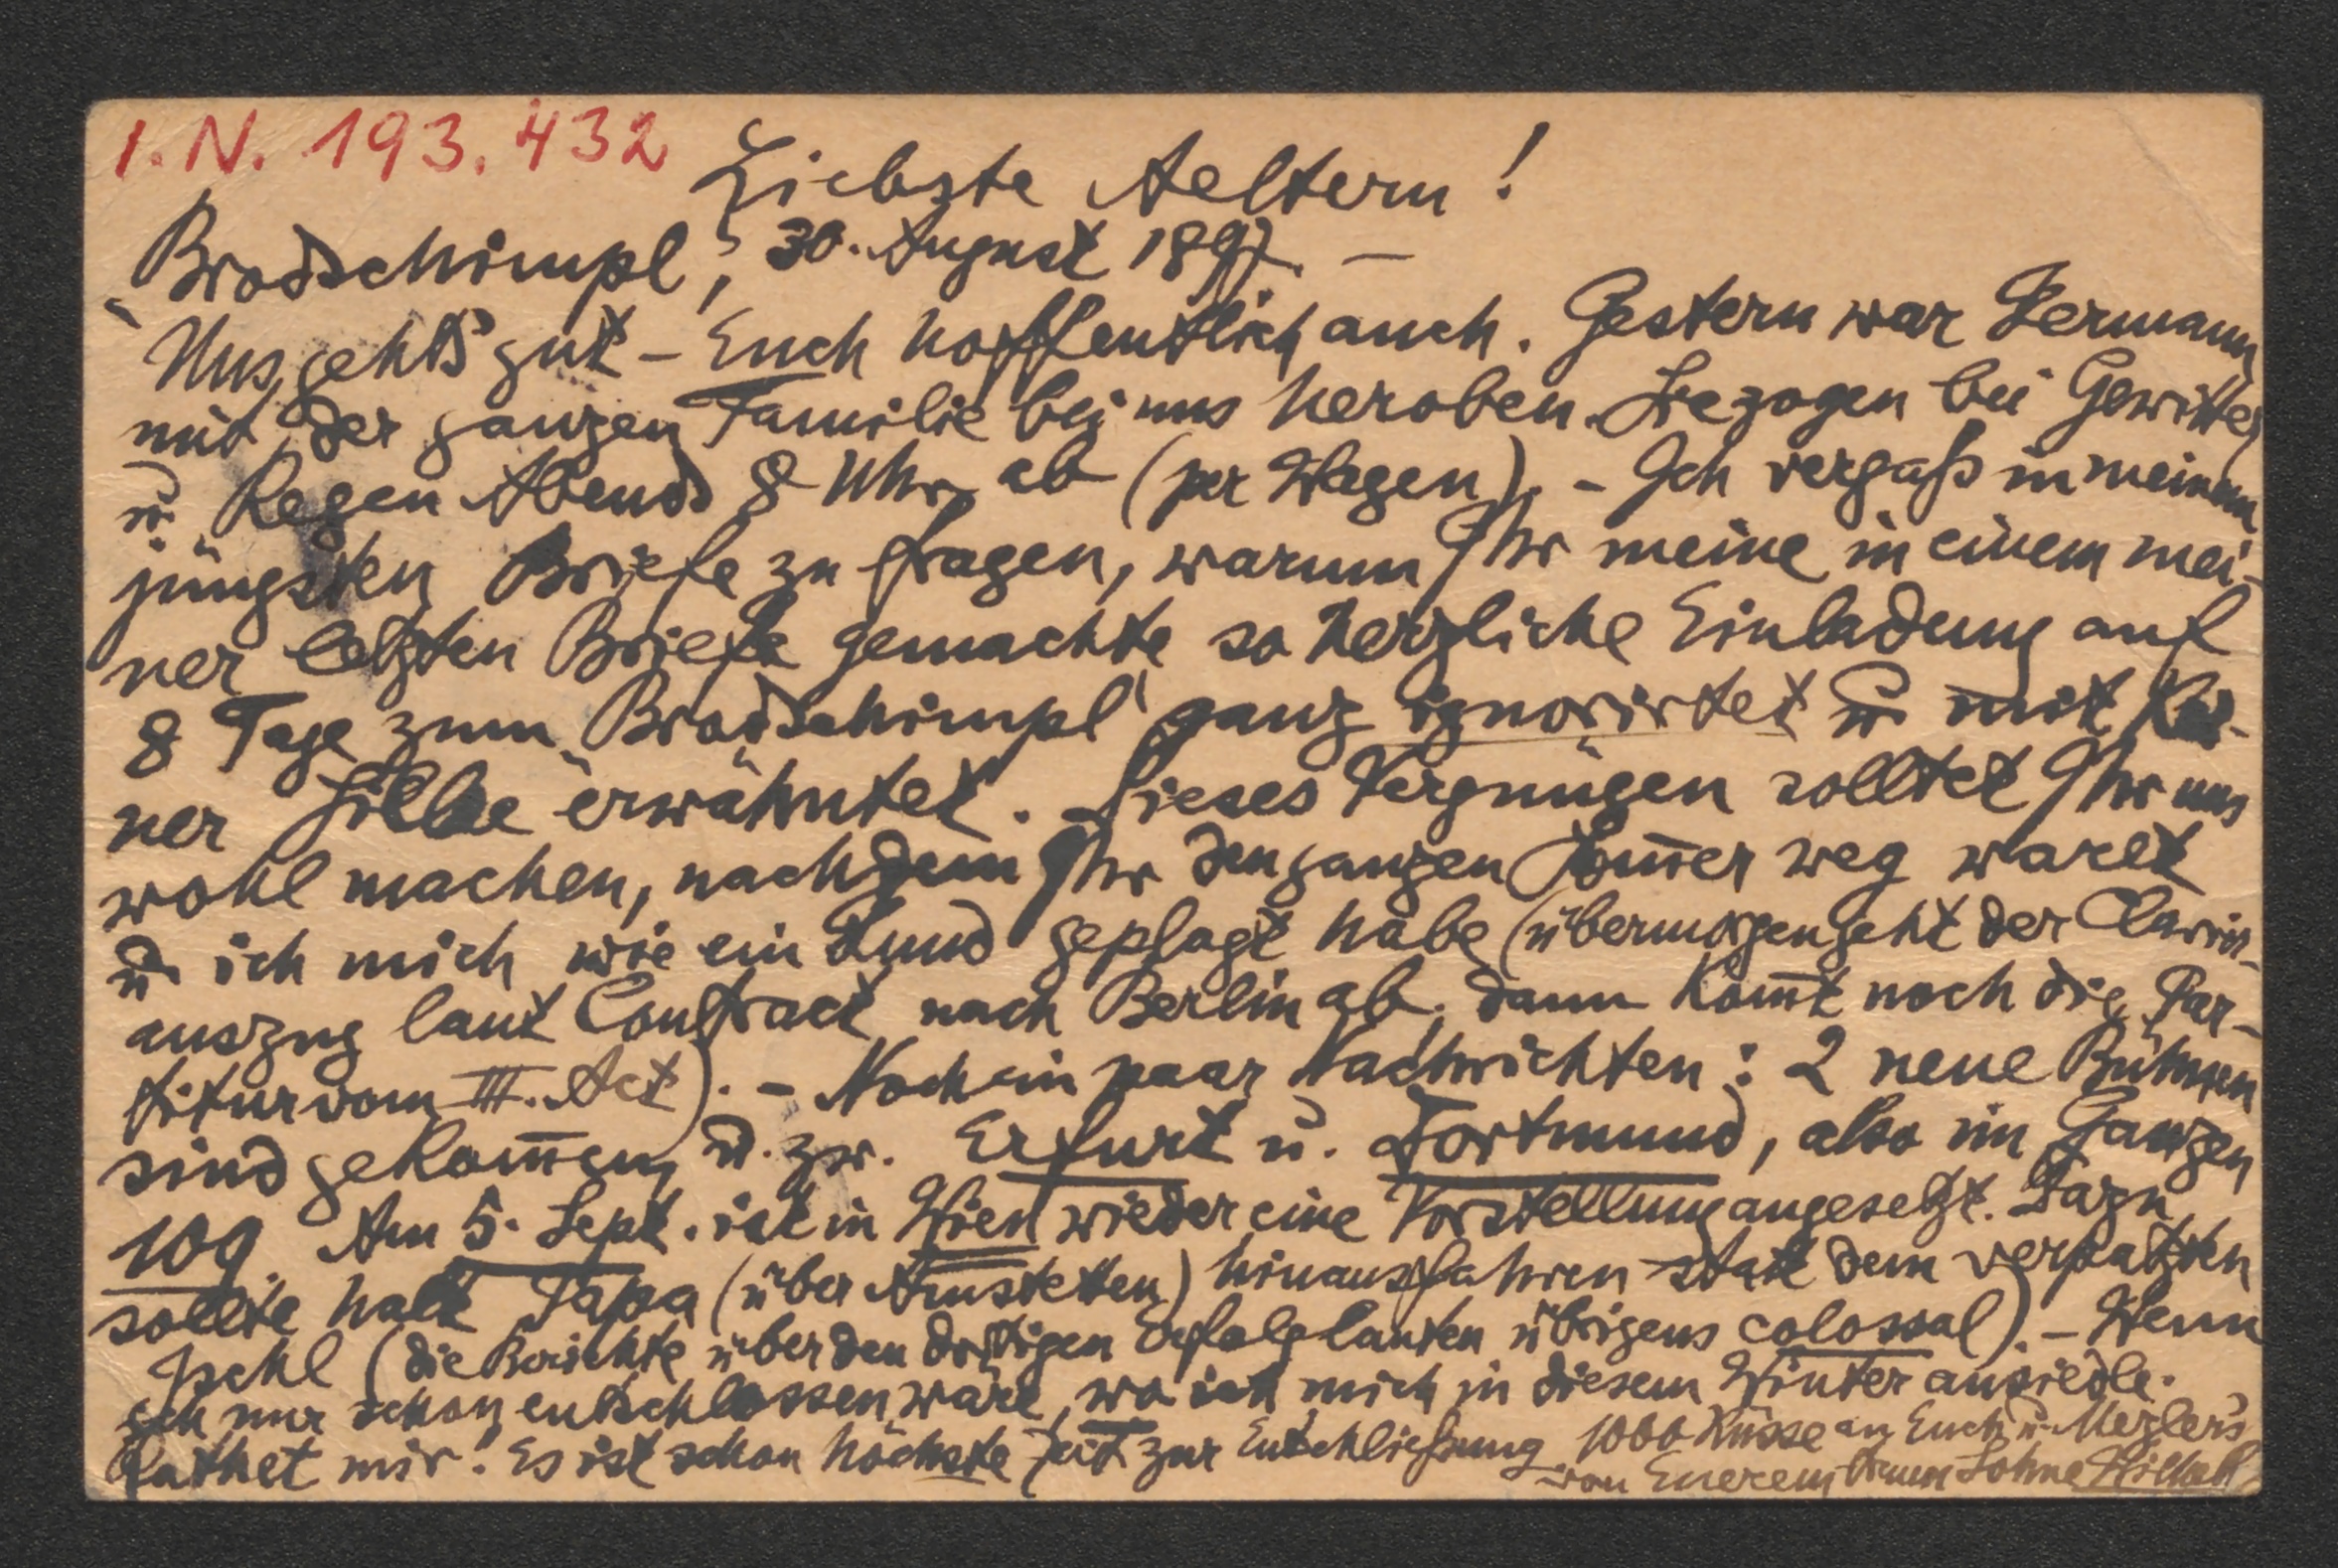 I. N. 193.432
Liebste Aeltern!
"Brodschimpl", 30. August 1897. —
Uns geht's gut – Euch hoffentlich auch. Gestern war Hermann
mit der ganzen Familie bei uns heroben. Sie zogen bei Gewitter
u. Regen Abends 8 Uhr ab (per Wagen). – Ich vergaß in meinem
jüngsten Briefe zu fragen, warum Ihr meine in einem mei-
ner letzten Briefe gemachte so herzliche Einladung auf
8 Tage zum "Brodschimpl" ganz ignorirtet u. mit kei-
ner Silbe erwähntet. Dieses Vergnügen solltet Ihr uns
wohl machen, nachdem Ihr den ganzen Som̅er weg waret
u. ich mich wie ein Hund geplagt habe (übermorgen geht der Clavier-
auszug laut Contract nach Berlin ab, dann kom̅t noch die Par-
titur vom III. Act). – Noch ein paar Nachrichten: 2 neue Bühnen
sind gekom̅en u. zw. Erfurt u. Dortmund, also im Ganzen
109. Am 5. Sept. ist in Wien wieder eine Vorstellung angesetzt. Dazu
sollte halt Papa (über Amstetten) hinausfahren statt dem verpatzten
Ischl (die Berichte über den dortigen Erfolg lauten übrigens colossal). – Wenn
ich nur schon entschlossen wäre, wo ich mich in diesem Winter ansiedle.
Rathet mir! Es ist schon höchste Zeit zur Entschließung 1000 Küsse an Euch u. Mezler's
von Euerem treuen Sohne